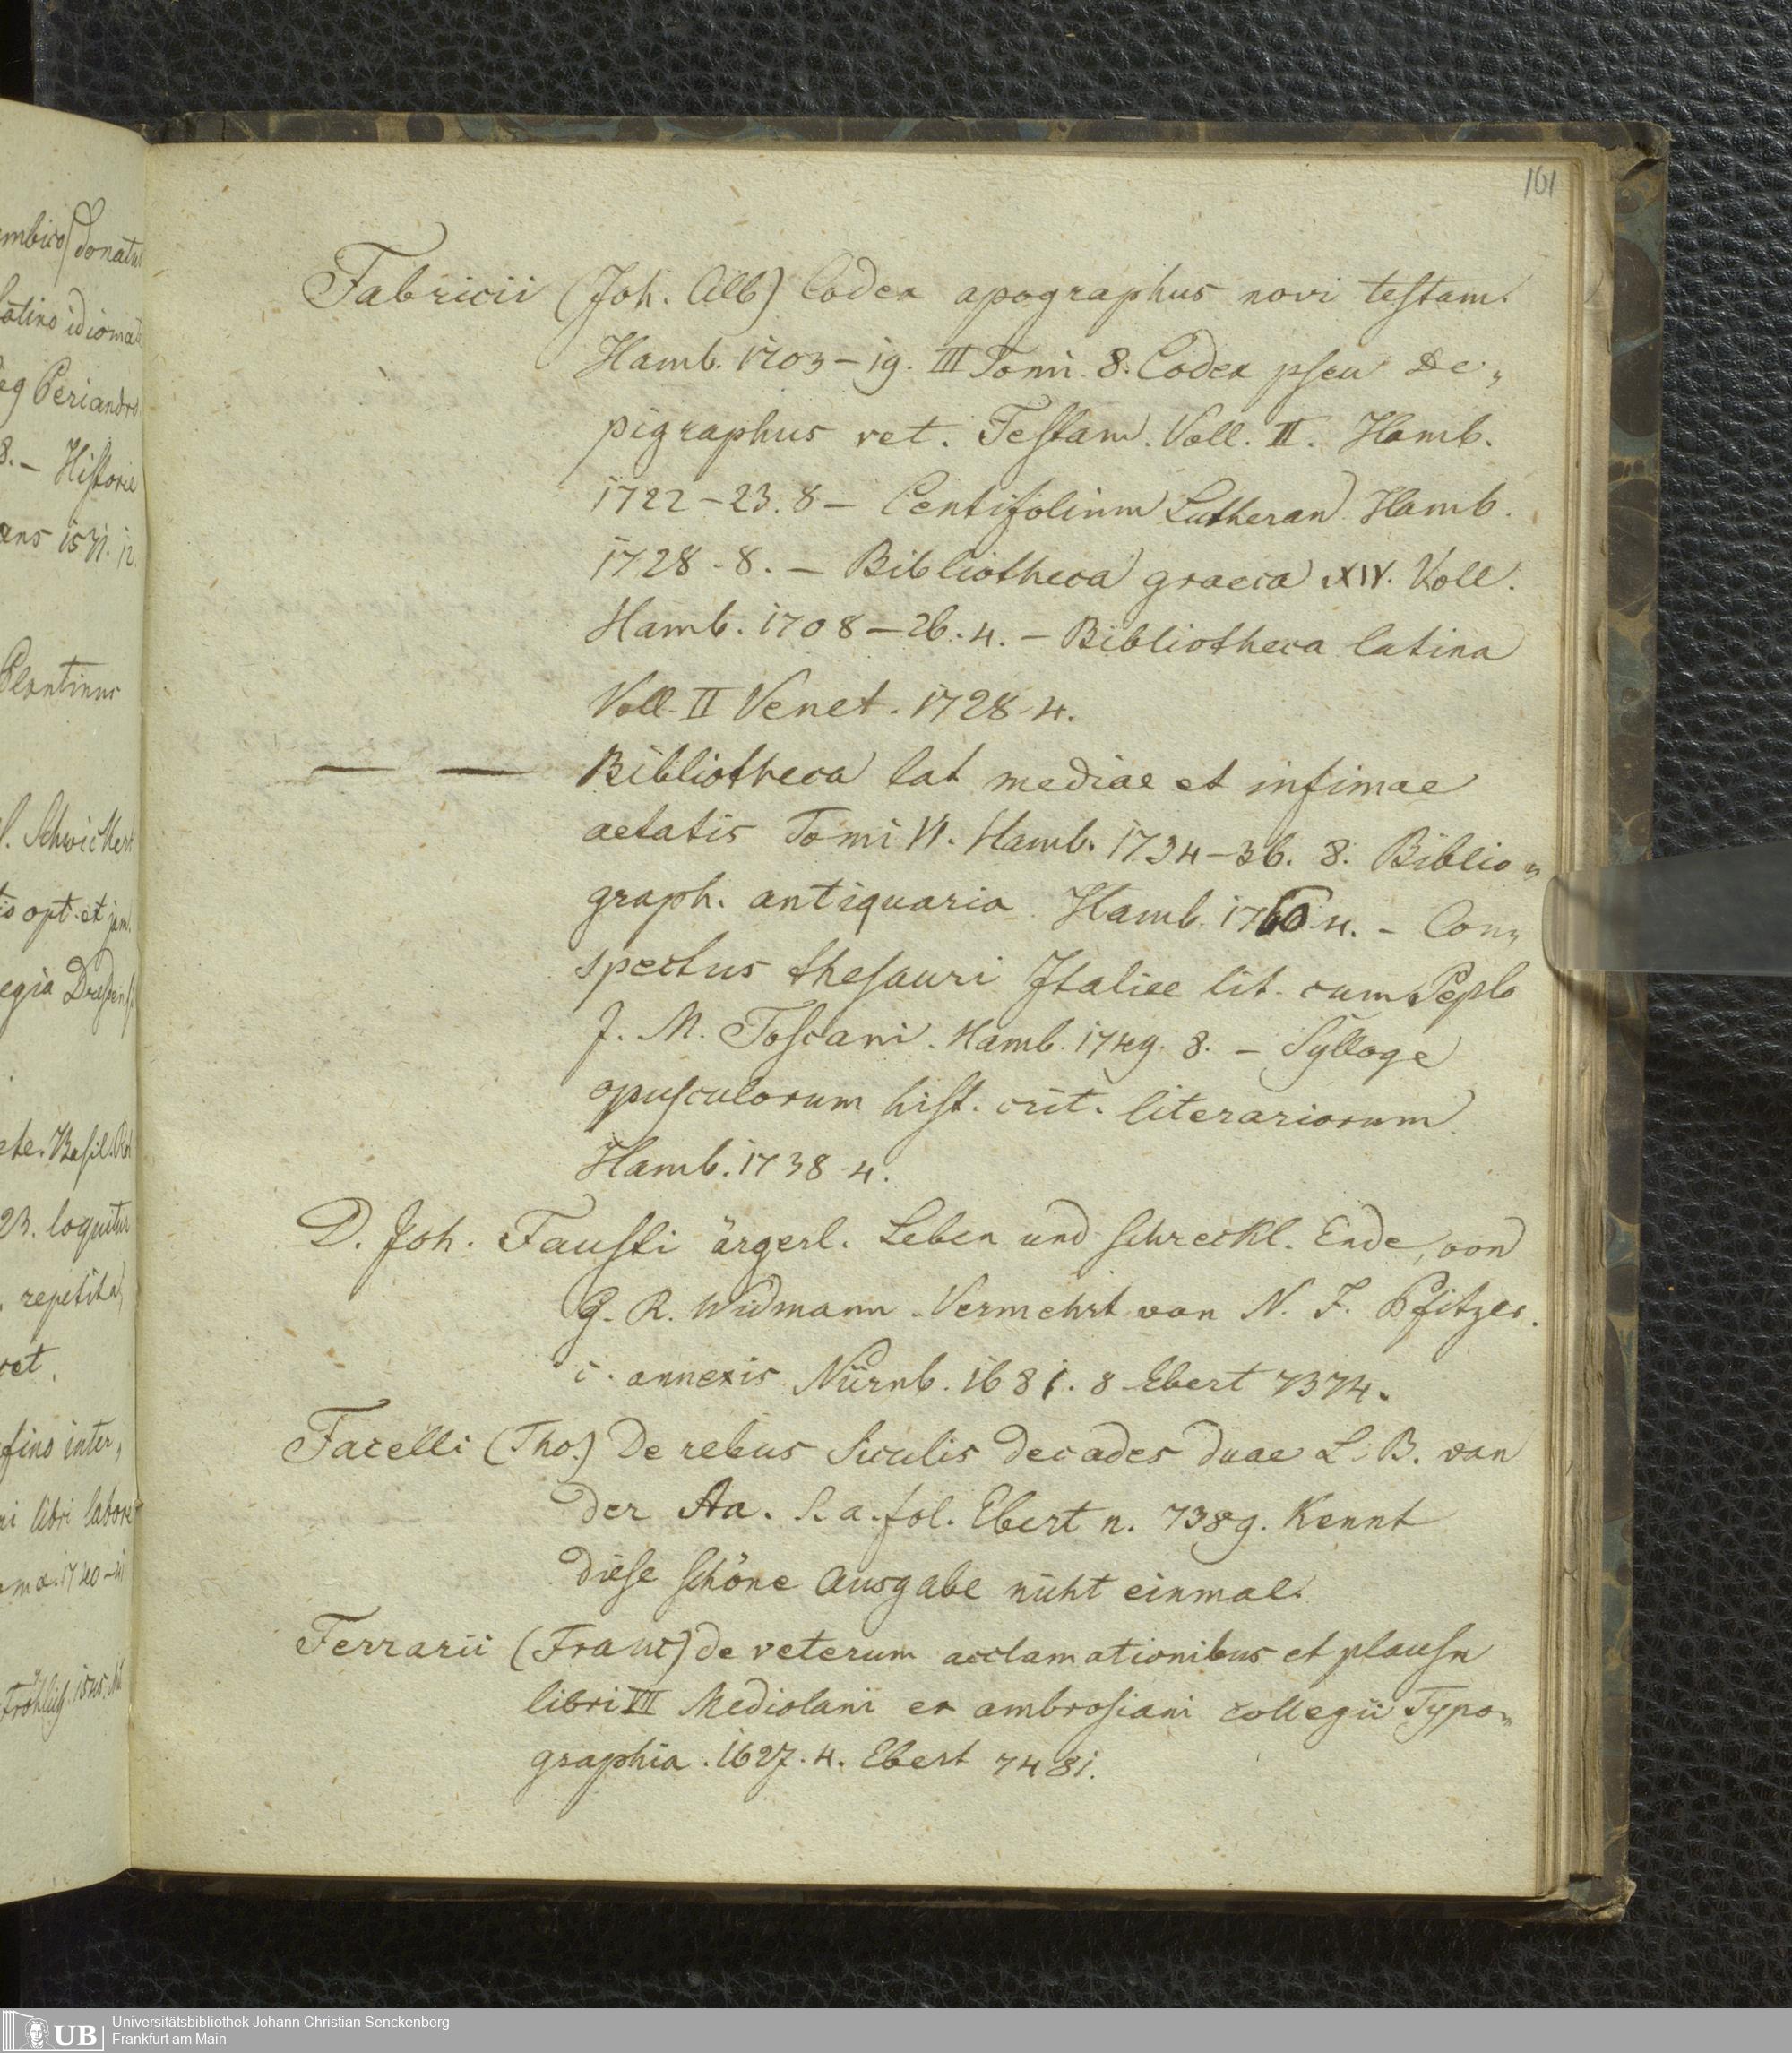 161
Fabricii (Joh. Alb) Codex apographus novi testam.
Hamb. 1703-19. III Tomi. 8. Codex pseu de„
pigraphus vet. Testam. Voll. II. Hamb.
1722-23. 8 - Centifolium Lutheran. Hamb.
1728-8. - Bibliotheca graeca XIV. Voll.
Hamb. 1708-26. 4. - Bibliotheca latina
Voll. II Venet. 1728-4.
— — Bibliotheca lat mediae et infimae
aetatis Tomi VI. Hamb. 1734-36. 8. Biblio„
graph. antiquaria. Hamb. 1760 4. - Con„
spectus thesauri Italiae lit. cum Peplo
J. M. Toscani. Hamb. 1749. 8. - Sylloge
opusculorum hist. crit. literariorum.
Hamb. 1738-4.
D. Joh. Fausti ärgerl. Leben und schreckl. Ende, von
G. R. Widmann. Vermehrt von N. J. Pfitzer.
c. annexis Nürnb. 1681. 8 Ebert 7374.
Facelli (Tho.) De rebus Siculis decades duae L. B. van
der Aa. s. a. fol. Ebert n. 7389. Kennt
diese schöne Ausgabe nicht einmal.
Ferrarii (Franc) de veterum acclamationibus et plausu
libri VII Mediolani ex ambrosiani collegii Typo„
graphia. 1627. 4. Ebert 7481.
mbico donatus
latino idiomate
eg Periandro
8. - Historie
ans 1571. 12.
Plantinus
Schwickert
is opt. et jam.
egia Dresdens.
ete. Basil. Rob
23. loquitur
repetita
vet.
fino inter„
ni libri labore
ma. 1740-41
Fröhlich. 1545.
UB
Universitätsbibliothek Johann Christian Senckenberg
Frankfurt am Main